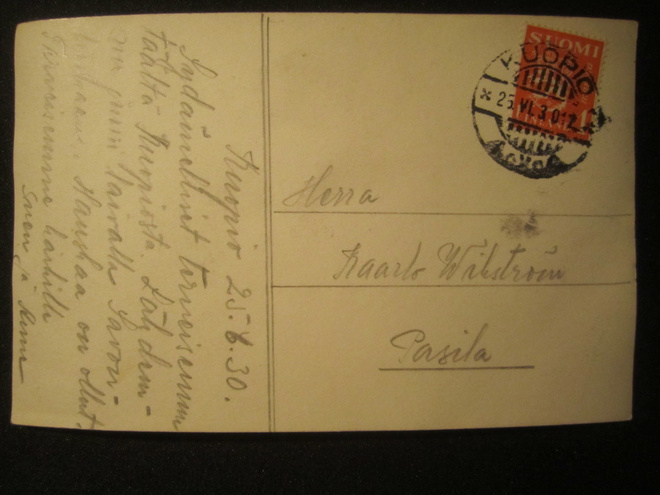 Kuopio 25.6.30.
Sydämelliset terveisemme
täältä Kuopiosta. Lähdem-
me juuri laivalla Savon-
linnaan. Hauskaa on ollut.
Terveisemme kaikille
SUOMI
KUOPIO
25.VI.30.-2
Herra
Kaarlo Wikström
Pasila